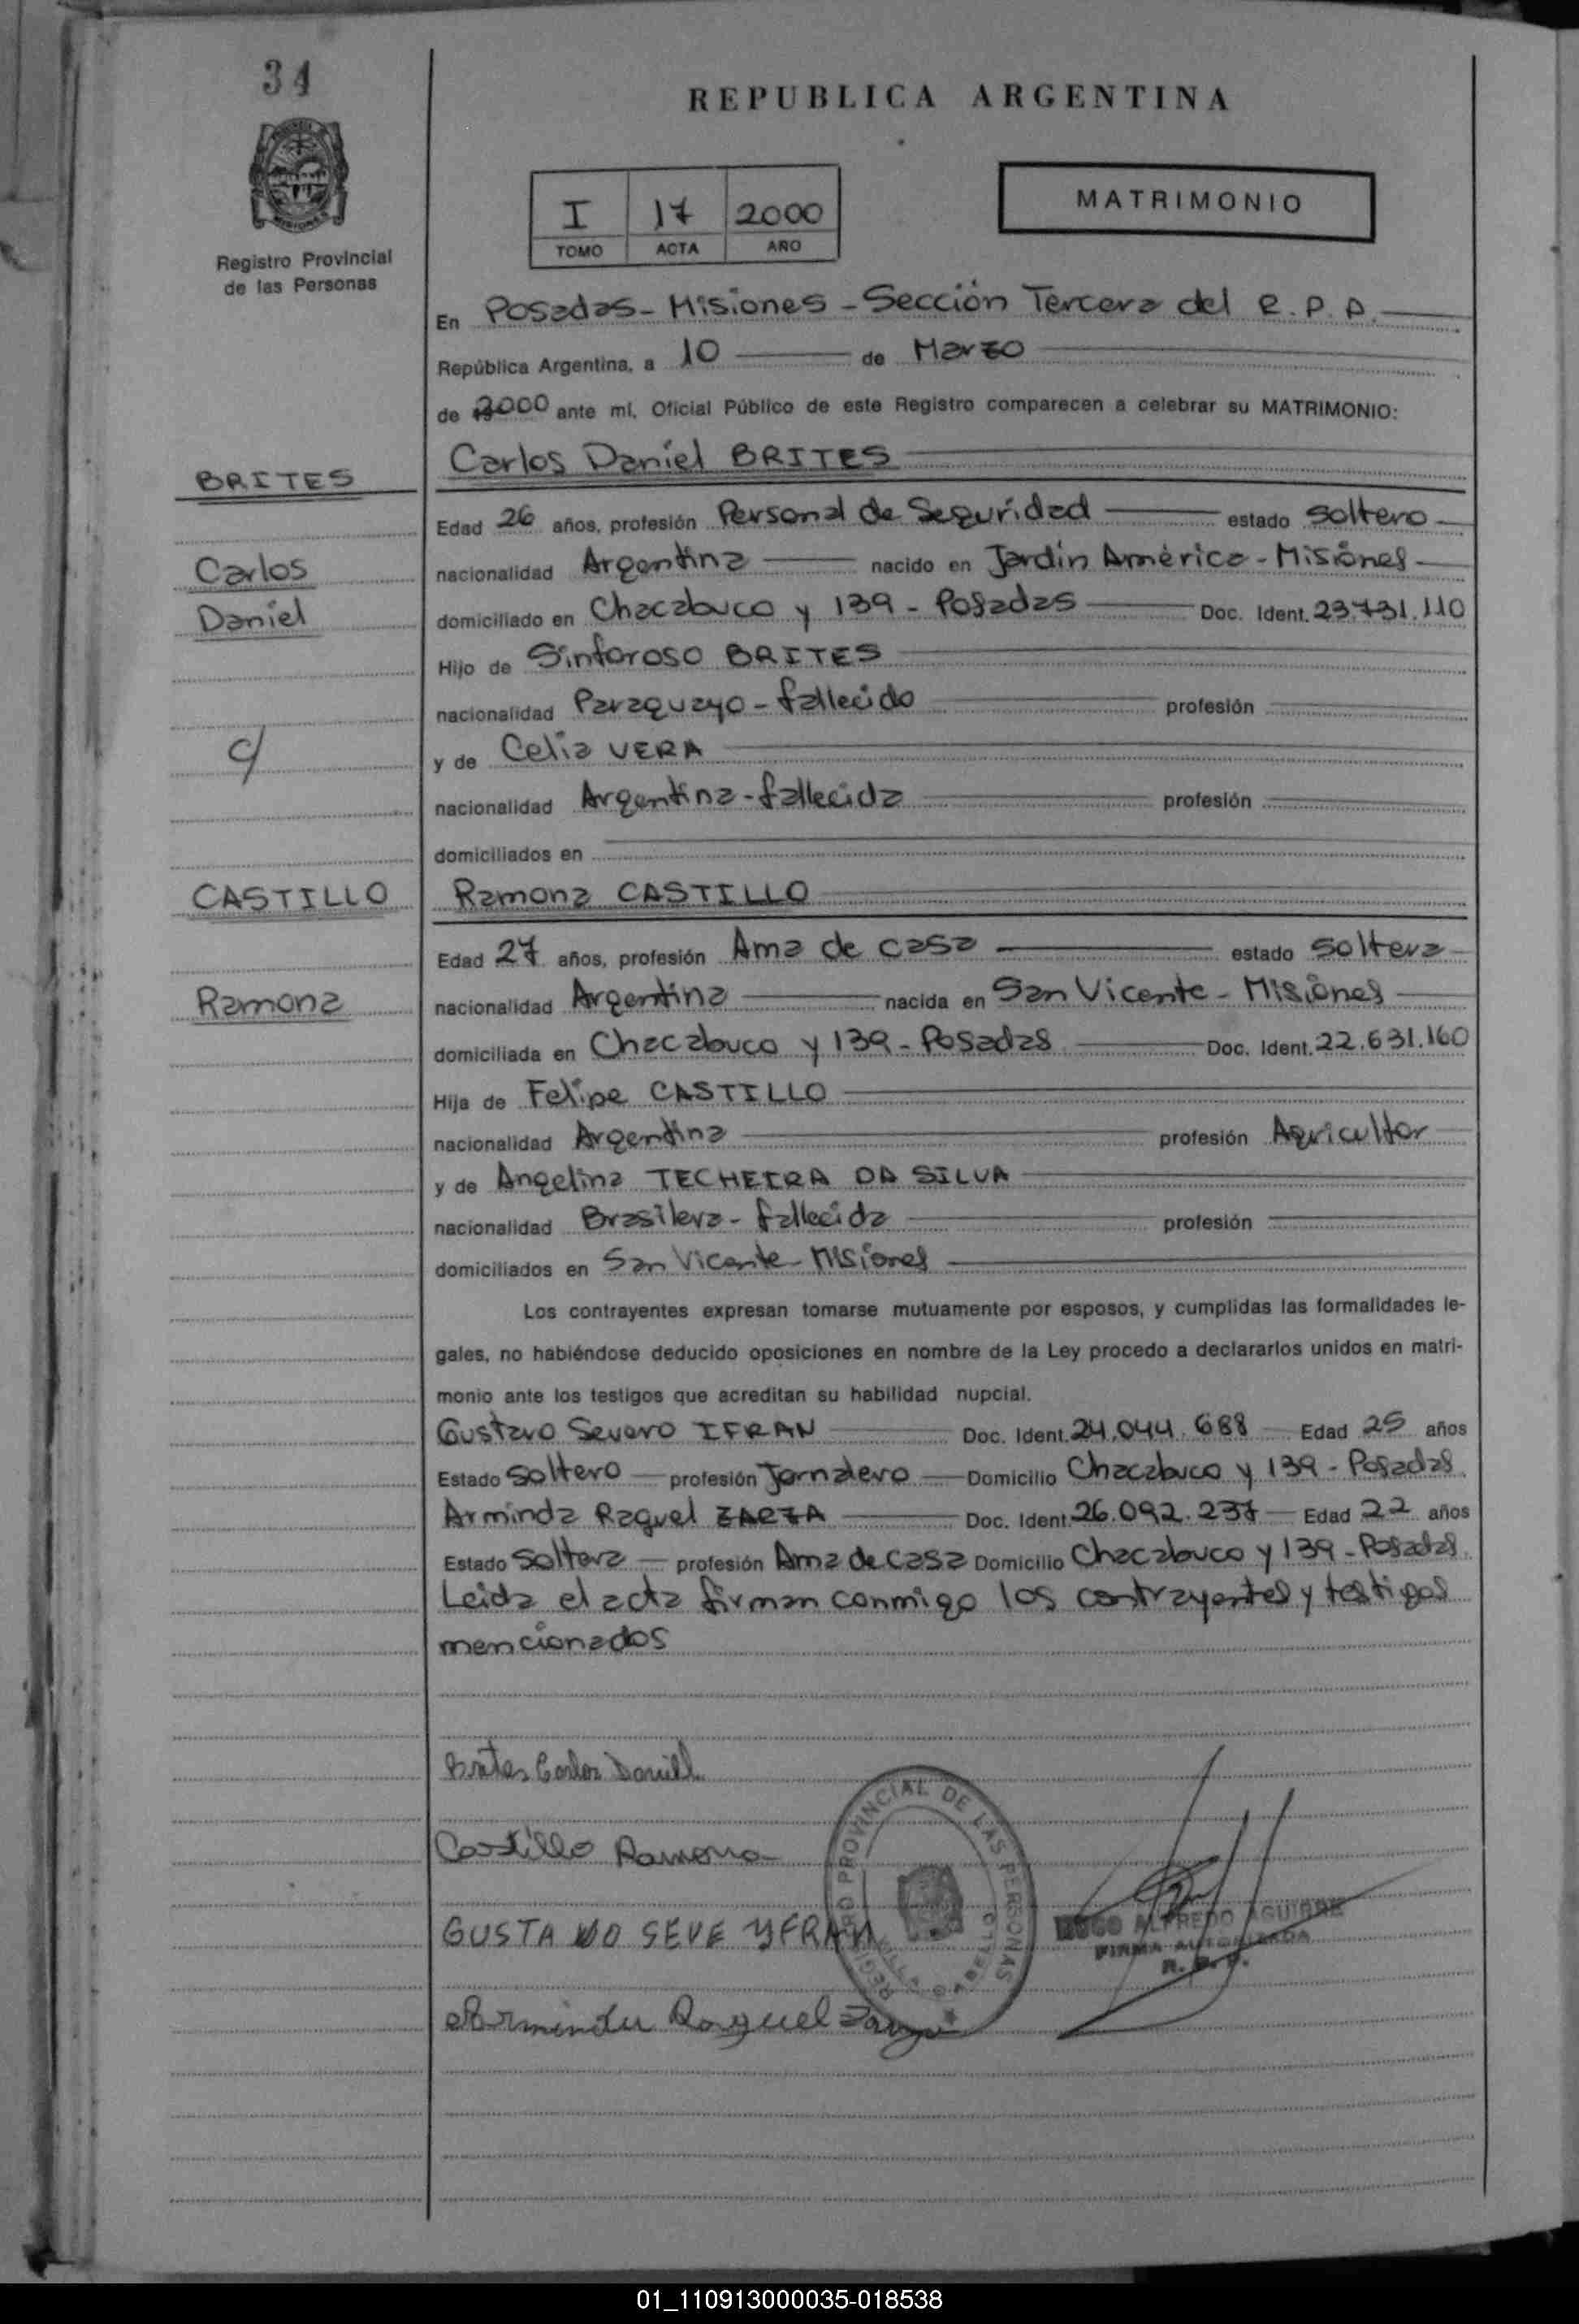 34
REPUBLICA ARGENTINA
I 17 2000
TOMO ACTA AÑO
MATRIMONIO
Registro Provincial
de las Personas
En Posadas - Misiones - Sección Tercera del R. P. P.
República Argentina, a 10 de Marzo
de 2000 ante mí, Oficial Público de este Registro comparecen a celebrar su MATRIMONIO:
BRITES
Carlos Daniel BRITES
Edad 26 años, profesión Personal de Seguridad estado soltero
Carlos
nacionalidad Argentina nacido en Jardín América - Misiones
Daniel
domiciliado en Chacabuco y 139 - Posadas Doc. Ident. 23.731.110
Hijo de Sinforoso BRITES
nacionalidad Paraguayo - fallecido profesión
c/
y de Celia VERA
nacionalidad Argentina - fallecida profesión
domiciliados en
CASTILLO
Ramona CASTILLO
Edad 27 años, profesión Ama de casa estado soltera
Ramona
nacionalidad Argentina nacida en San Vicente - Misiones
domiciliada en Chacabuco y 139 - Posadas Doc. Ident. 22.631.160
Hija de Felipe CASTILLO
nacionalidad Argentina profesión Agricultor
y de Angelina TECHEIRA DA SILVA
nacionalidad Brasilera - fallecida profesión
domiciliados en San Vicente - Misiones
Los contrayentes expresan tomarse mutuamente por esposos, y cumplidas las formalidades le-
gales, no habiéndose deducido oposiciones en nombre de la Ley procedo a declararlos unidos en matri-
monio ante los testigos que acreditan su habilidad nupcial.
Gustavo Severo IFRAN Doc. Ident. 24.044.688 Edad 25 años
Estado soltero profesión Jornalero Domicilio Chacabuco y 139 - Posadas
Arminda Raquel ZARZA Doc. Ident. 26.092.237 Edad 22 años
Estado soltera profesión Ama de casa Domicilio Chacabuco y 139 - Posadas.
Leida el acta firman conmigo los contrayentes y testigos
mencionados
Brites Carlos Daniel
Castillo Ramona
GUSTAVO SEVE YFRAN
REGISTRO PROVINCIAL DE LAS PERSONAS
HUGO ALFREDO AGUIRRE
FIRMA AUTORIZADA
R. P. P.
Arminda Raquel Zarza
01_110913000035-018538